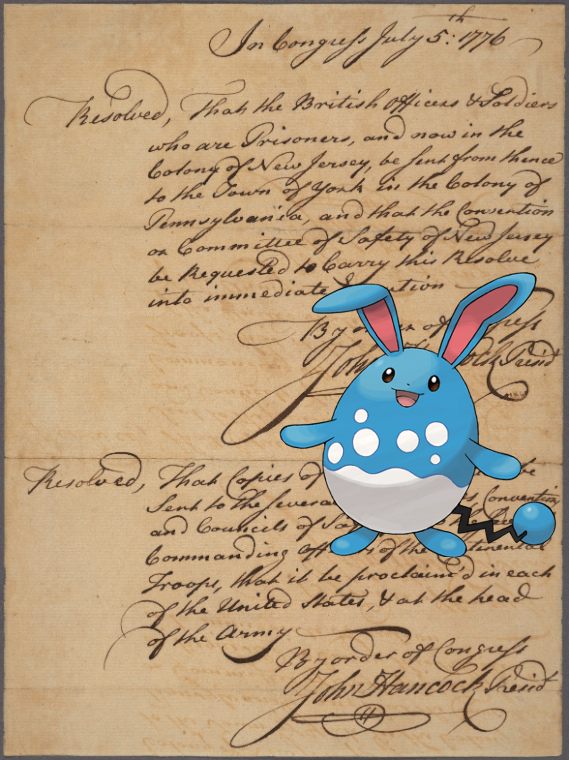 In Congress July 5th: 1776
Resolved, That the British Officers & Soldiers
who are Prisoners, and now in the
Colony of New Jersey, be sent from thence
to the Town of York in the Colony of
Pennsylvania, and that the Convention
or Committee of Safety of New Jersey
be Requested to Carry this Resolve
into immediate
By order of
John Presid
Resolved, That Copies of be
Sent to the several Convention
and Councils of
Commanding of the
Troops, that it be proclaim'd in each
of the United States, & at the head
of the Army
By order of Congress
John Hancock Presid